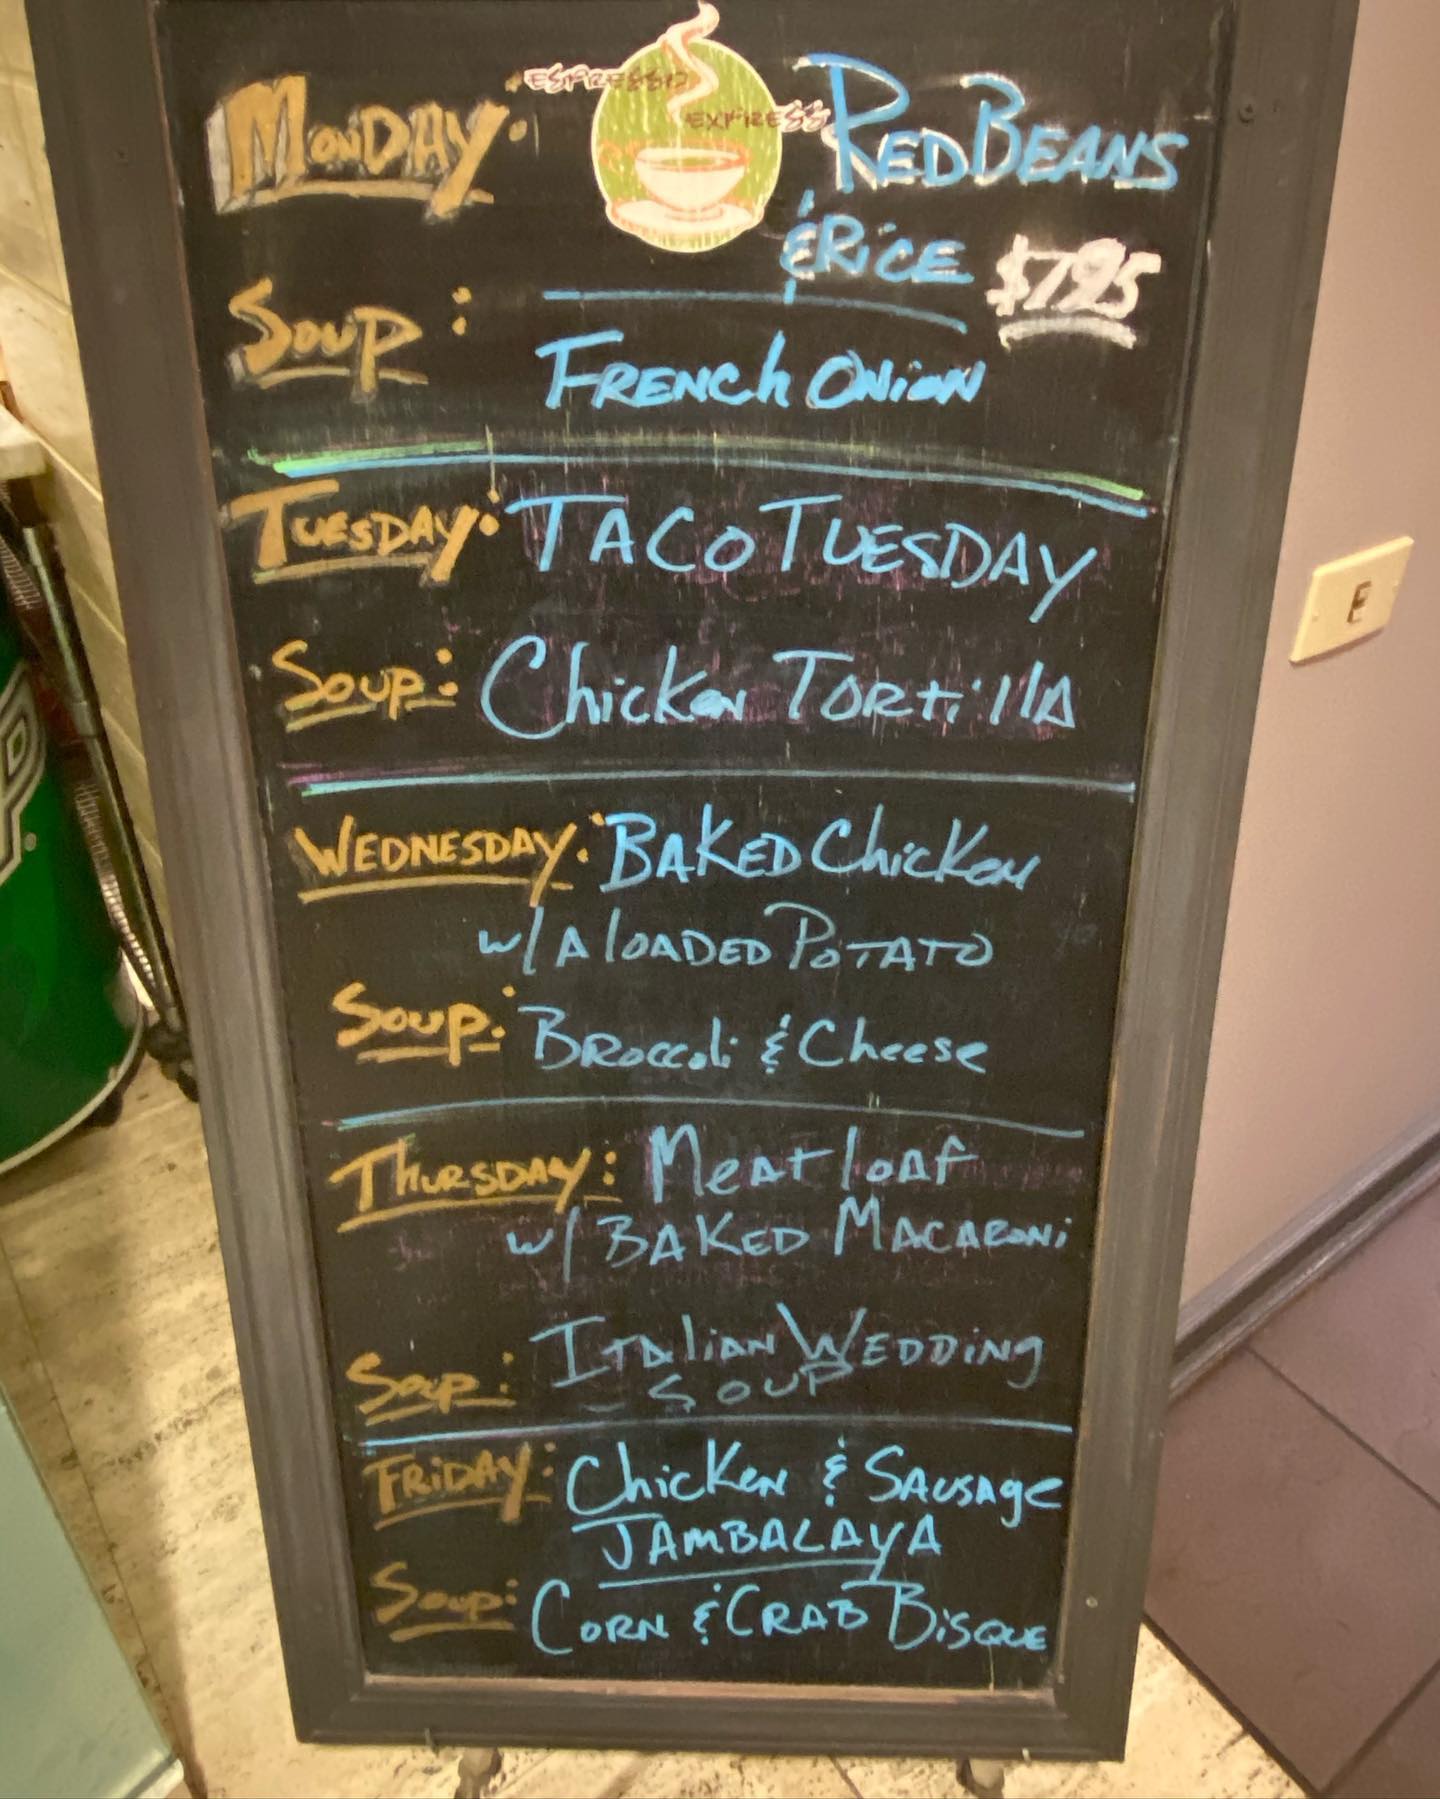 Monday: Red Beans
Espresso
Express
& Rice $7.95
Soup: French Onion
Tuesday: Taco Tuesday
Soup: Chicken Tortilla
Wednesday: Baked Chicken
w/ a loaded Potato
Soup: Broccoli & Cheese
Thursday: Meat loaf
w/ Baked Macaroni
Soup: Italian Wedding
Soup
Friday: Chicken & Sausage
Jambalaya
Soup: Corn & Crab Bisque
E